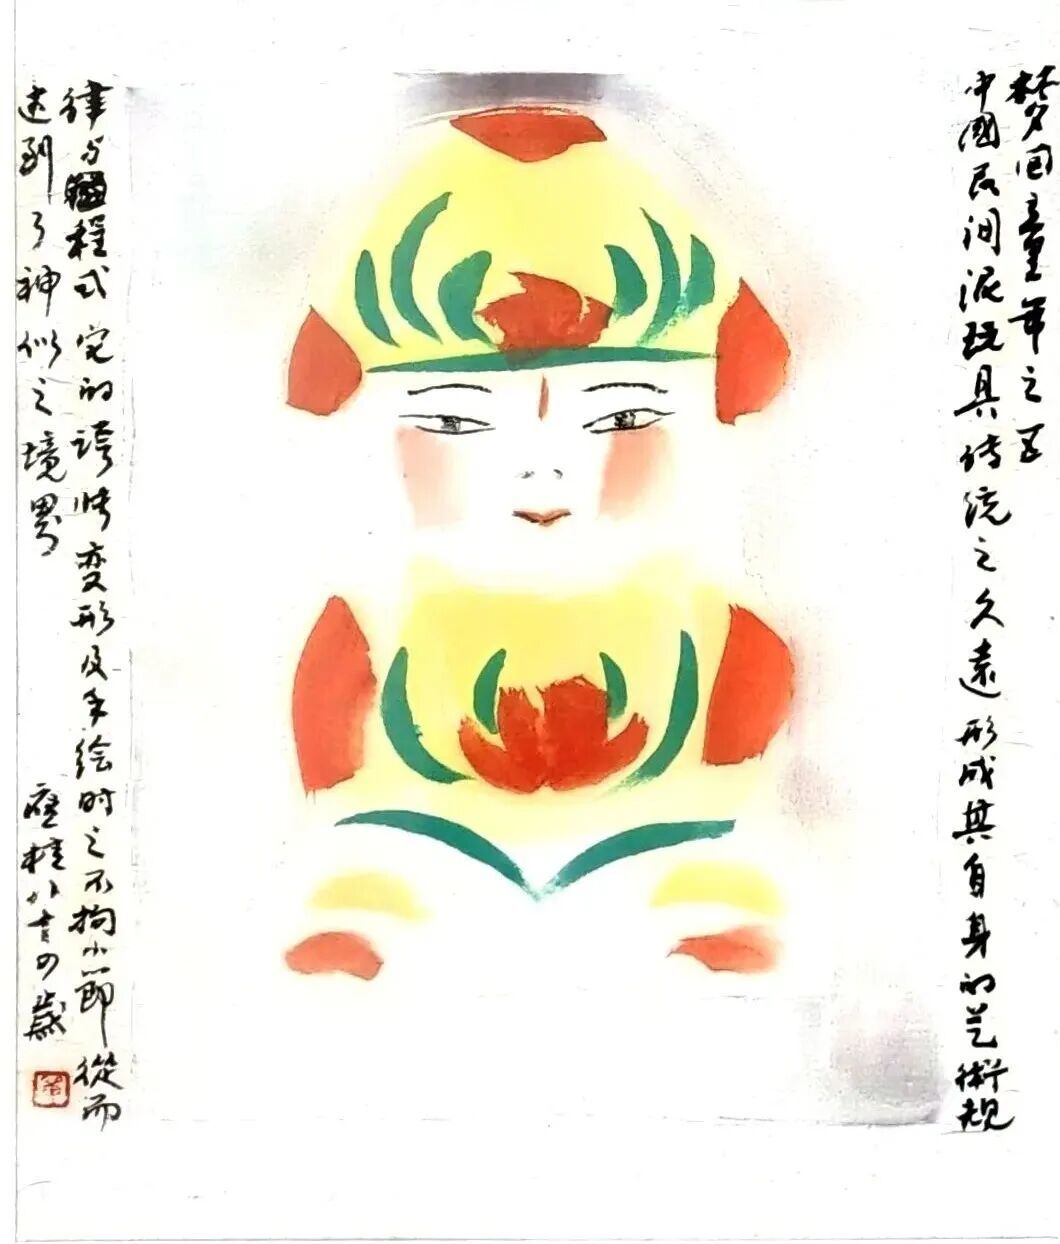 梦回童年之五
中國民间泥玩具传统之久遠形成其自身的艺術规
律与程式它的誇张变形及手绘时之不拘小節從而
达到了神似之境界
應桂八十四歲